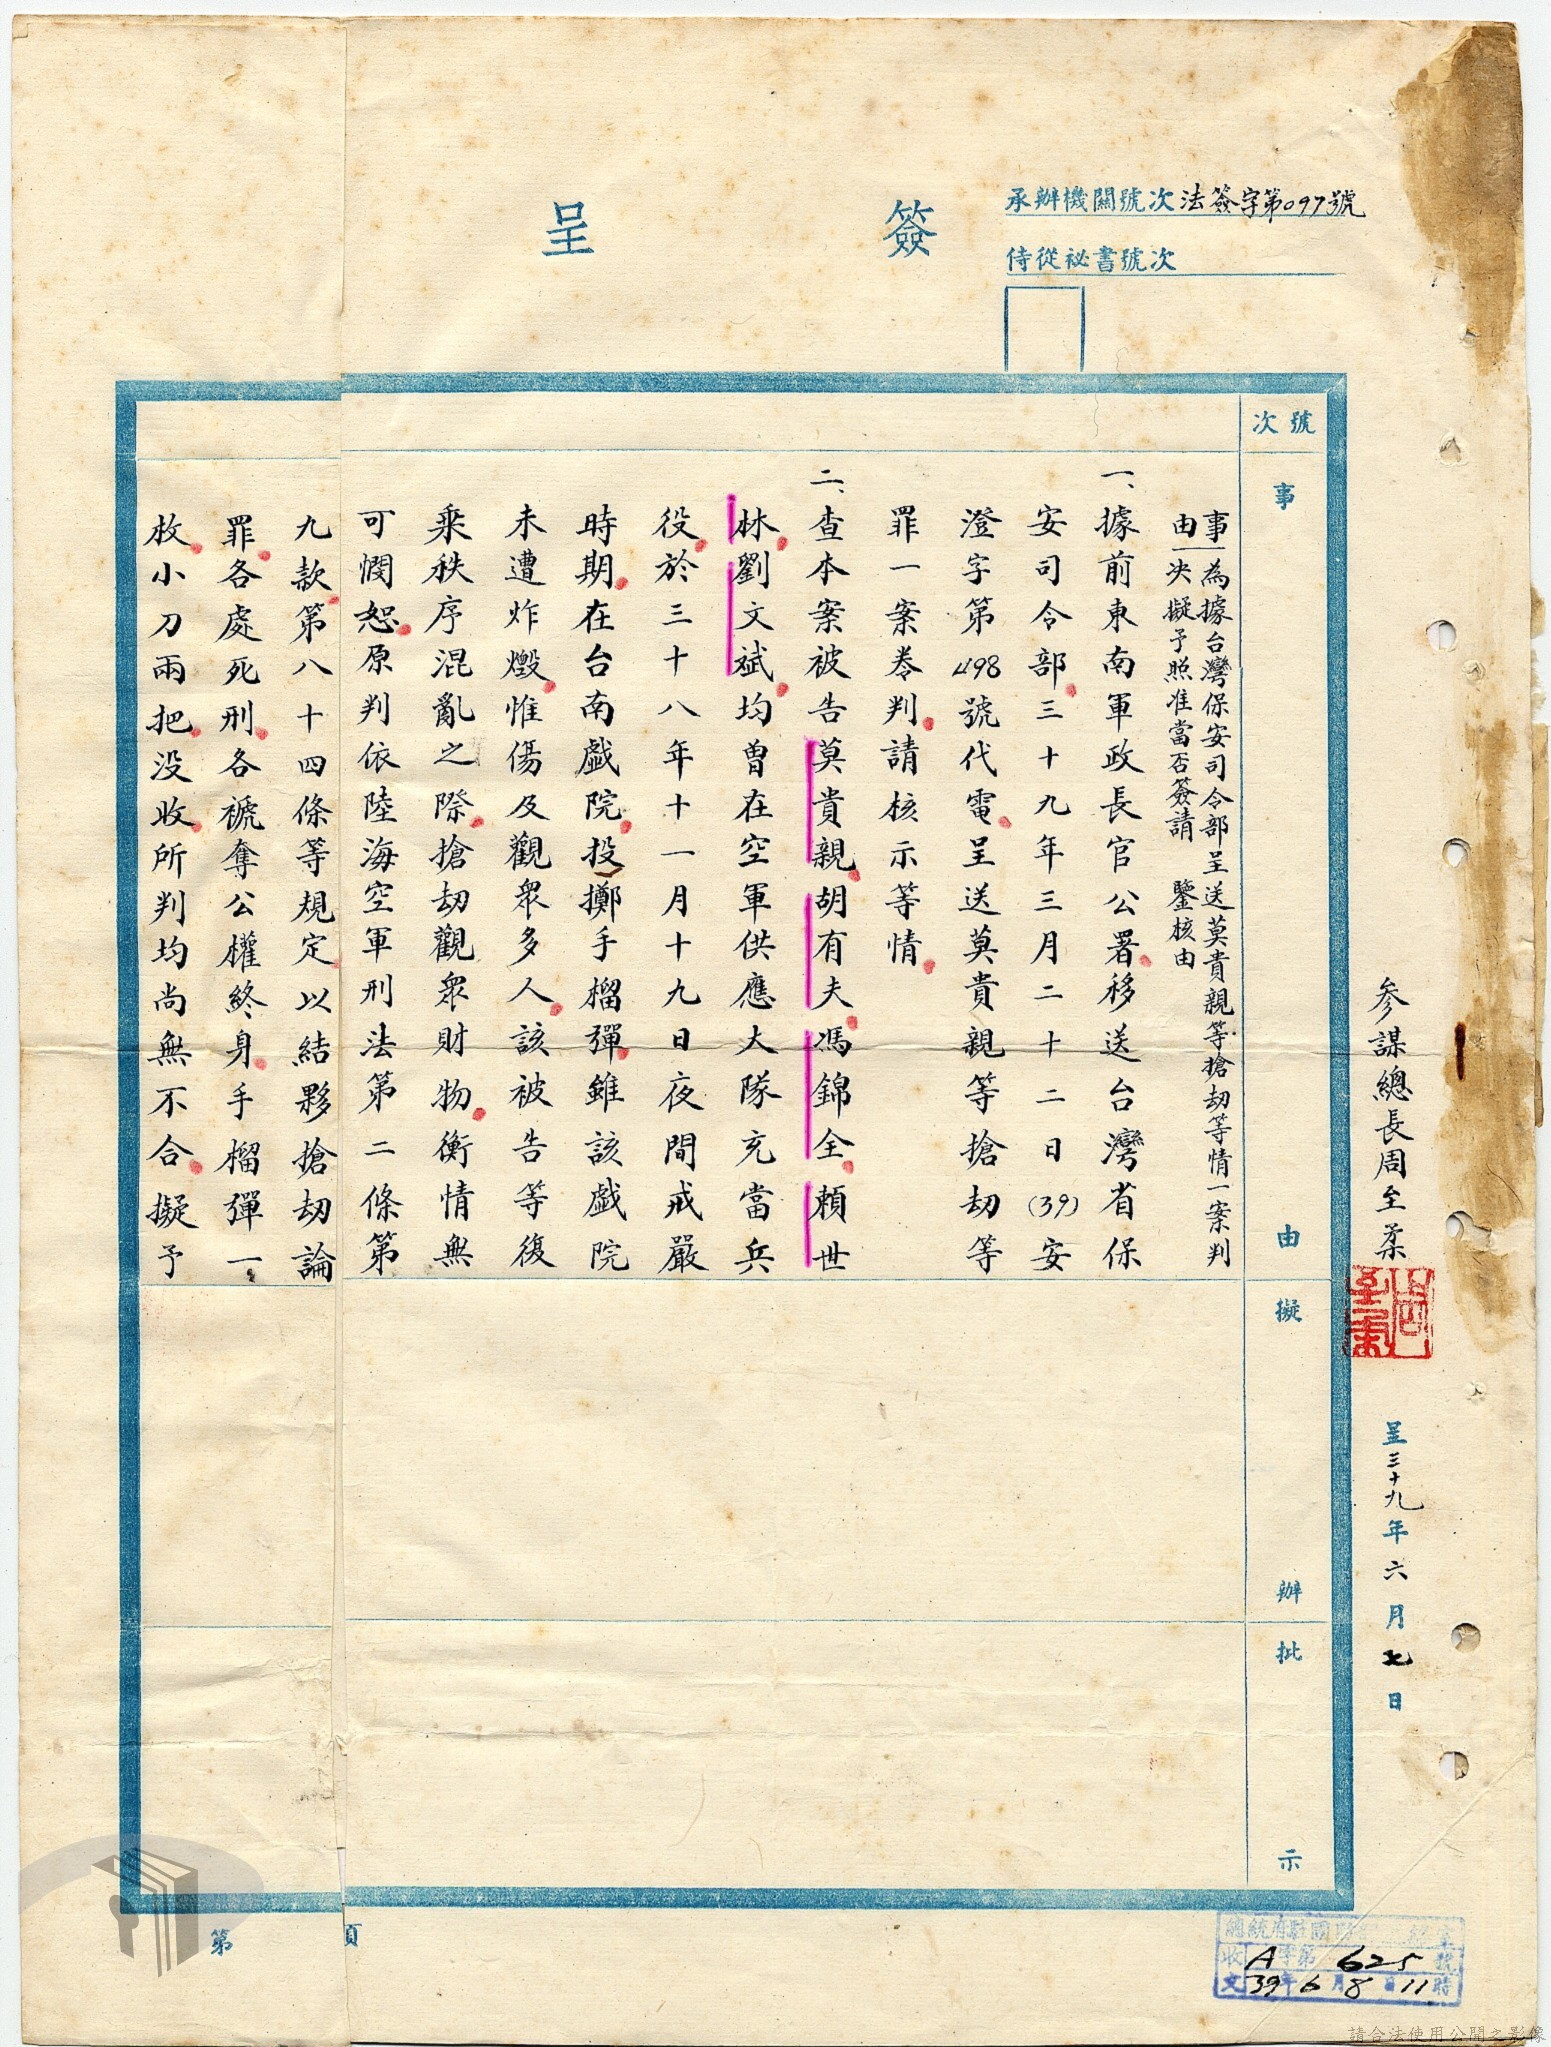 簽呈
承辦機關號次法簽字第097號
侍從祕書號次
參謀總長周至柔
呈三十九年六月七日
號次
事由
擬辦
批示
事由
為據台灣保安司令部呈送莫貴親等搶劫等情一案判
決擬予照准當否簽請 鑒核由
一、據前東南軍政長官公署移送台灣省保
安司令部三十九年三月二十二日(39)安
澄字第498號代電呈送莫貴親等搶劫等
罪一案卷判請核示等情
二、查本案被告莫貴親胡有夫馮錦全賴世
林劉文斌均曾在空軍供應大隊充當兵
役於三十八年十一月十九日夜間戒嚴
時期在台南戲院投擲手榴彈雖該戲院
未遭炸燬惟傷及觀眾多人該被告等復
乘秩序混亂之際搶劫觀眾財物衡情無
可憫恕原判依陸海空軍刑法第二條第
九款第八十四條等規定以結夥搶劫論
罪各處死刑各褫奪公權終身手榴彈一
枚小刀兩把沒收所判均尚無不合擬予
第 頁
收文 A字第625號
39年6月8日11時
請合法使用公開之影像